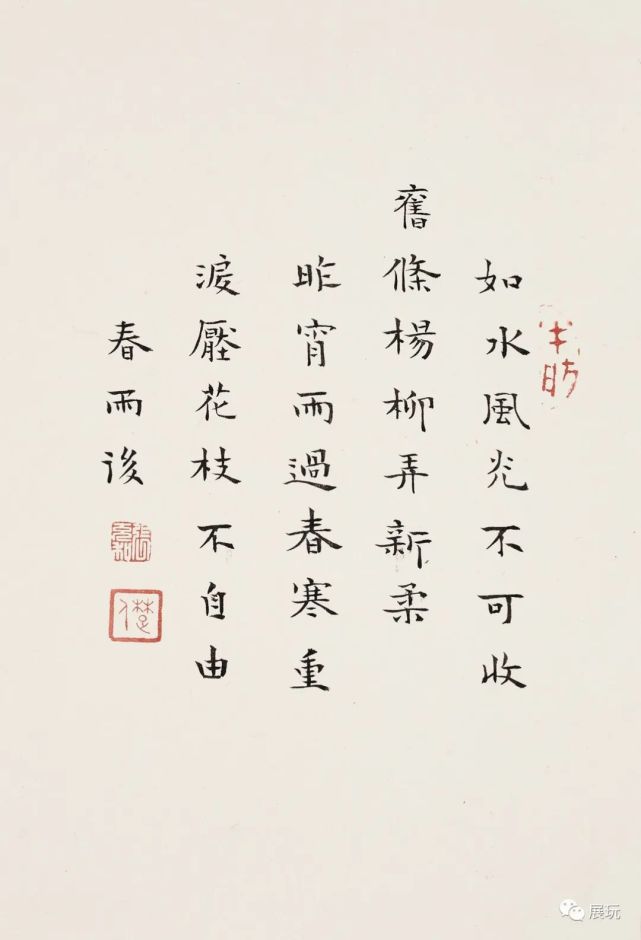 如水風光不可收
舊條楊柳弄新柔
昨宵雨過春寒重
淚壓花枝不自由
春雨後
展玩